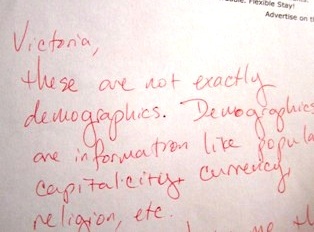 Flexible Stay!
Advertise on th
Victoria,
these are not exactly
demographics. Demographics
are information like popula
capital city, currency,
religion, etc.